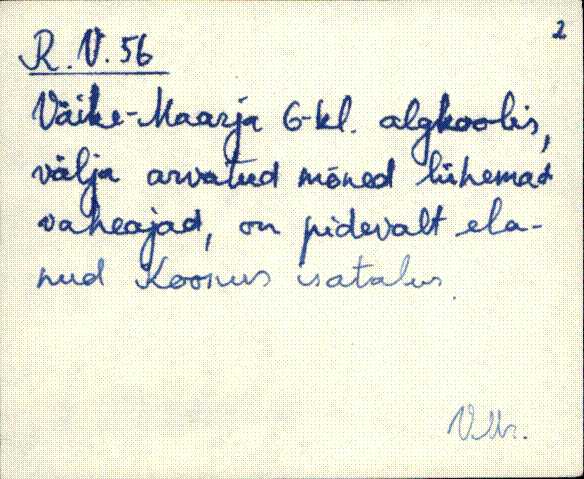 2
R.V. 56
Väike-Maarja 6-kl. algkoolis,
välja arvatud mõned lühemad
vaheajad, on pidevalt ela-
nud Koonus isatalus.